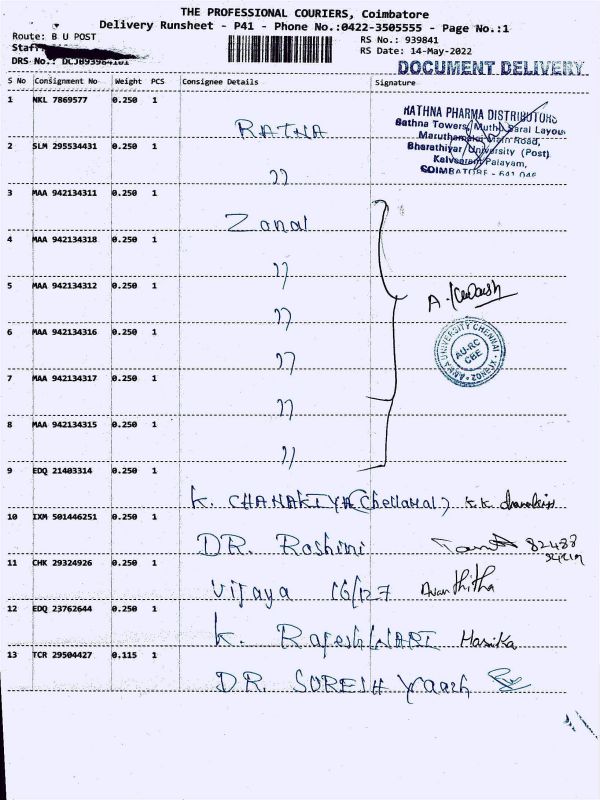 THE PROFESSIONAL COURIERS, Coimbatore
Delivery Runsheet - P41 - Phone No.:0422-3505555 - Page No.:1
Route: B U POST
RS No.: 939841
Staff
RS Date: 14-May-2022
DRS No.: DCJB93984101
DOCUMENT DELIVERY
S No Consignment No Weight PCS Consignee Details Signature
1 NKL 7869577 0.250 1 RATNA
RATHNA PHARMA DISTRIBUTORS
Rathna Towers, Muthu Saral Layout
Maruthamalai Main Road,
Bharathiyar University (Post)
Kalveerampalayam,
COIMBATORE - 641 046
2 SLM 295534431 0.250 1 ,,
3 MAA 942134311 0.250 1 Zonal
4 MAA 942134318 0.250 1 ,,
5 MAA 942134312 0.250 1 ,,
A.
6 MAA 942134316 0.250 1 ,,
ANNA UNIVERSITY CHENNAI
AU-RC
CBE
7 MAA 942134317 0.250 1 ,,
8 MAA 942134315 0.250 1 ,,
9 EDQ 21403314 0.250 1 K. CHANAKIYA (Chellamal) K.K.
10 IXM 501446251 0.250 1 DR. Roshini 82488
11 CHK 29324926 0.250 1 Vijaya 16/127 Avanthitha
12 EDQ 23762644 0.250 1 K. RajeshWARI Harika
13 TCR 29504427 0.115 1 DR. SURESH